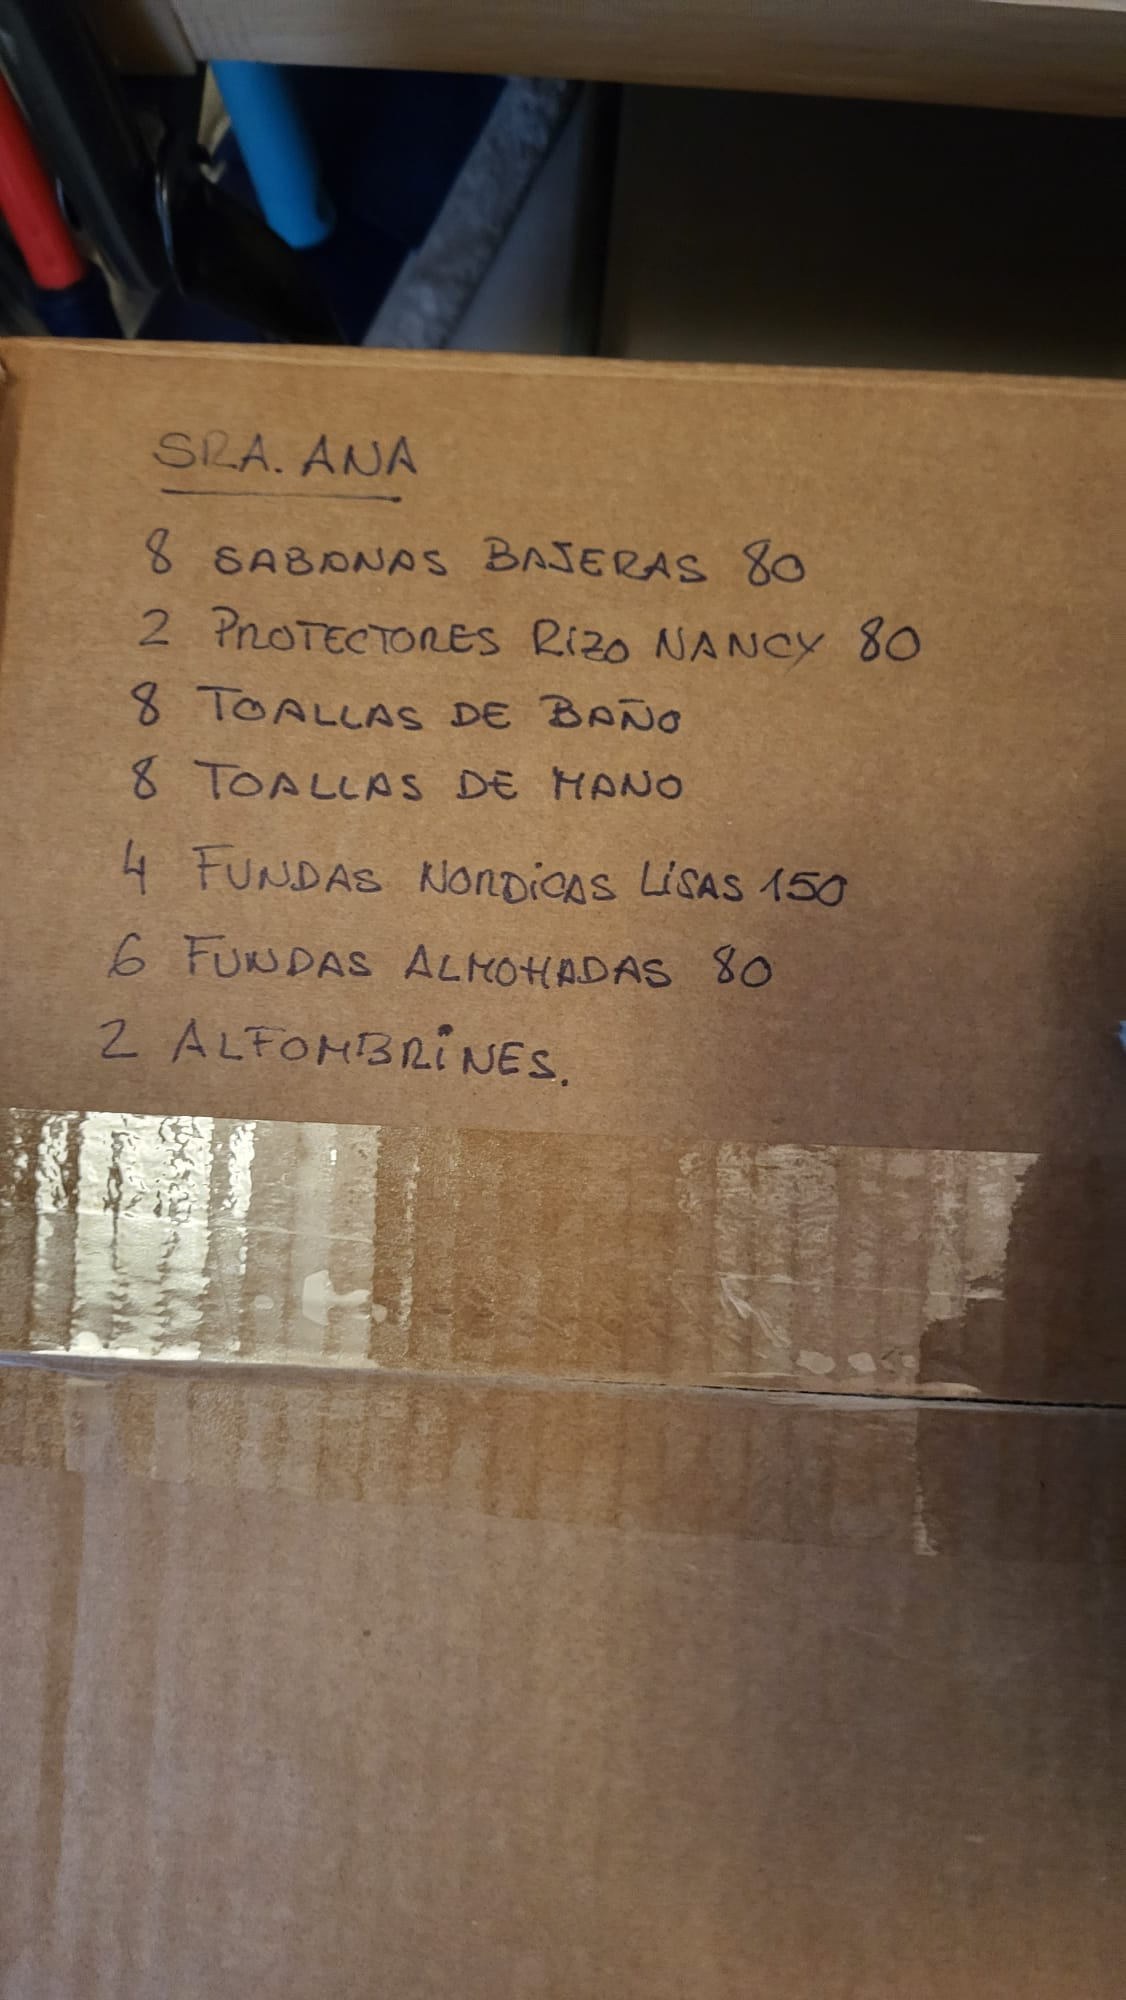 SRA. ANA
8 SABANAS BAJERAS 80
2 PROTECTORES RIZO NANCY 80
8 TOALLAS DE BAÑO
8 TOALLAS DE MANO
4 FUNDAS NORDICAS LISAS 150
6 FUNDAS ALMOHADAS 80
2 ALFOMBRINES.